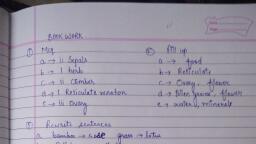 BOOK WORK
① MCQ
a → ii Sepals
b → i herb
c → ii Climber
d → i Reticulate venation
e → iii Ovary
② Fill up
a → food
b → Reticulate
c → Ovary, flower
d → flower
e → water, minerals
③ Rewrite sentences
a bamboo → grass → lotus